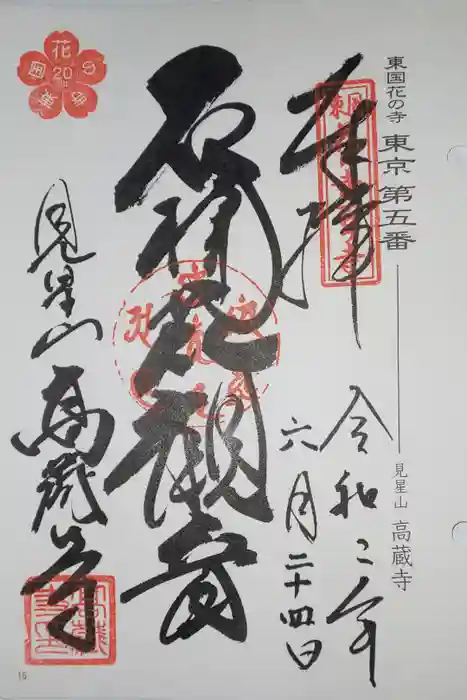 東国花の寺 東京 第五番
見星山 高蔵寺
奉拝
令和二年
六月二十四日
石楠花観音
見星山 高蔵寺
花
の
東
国
20